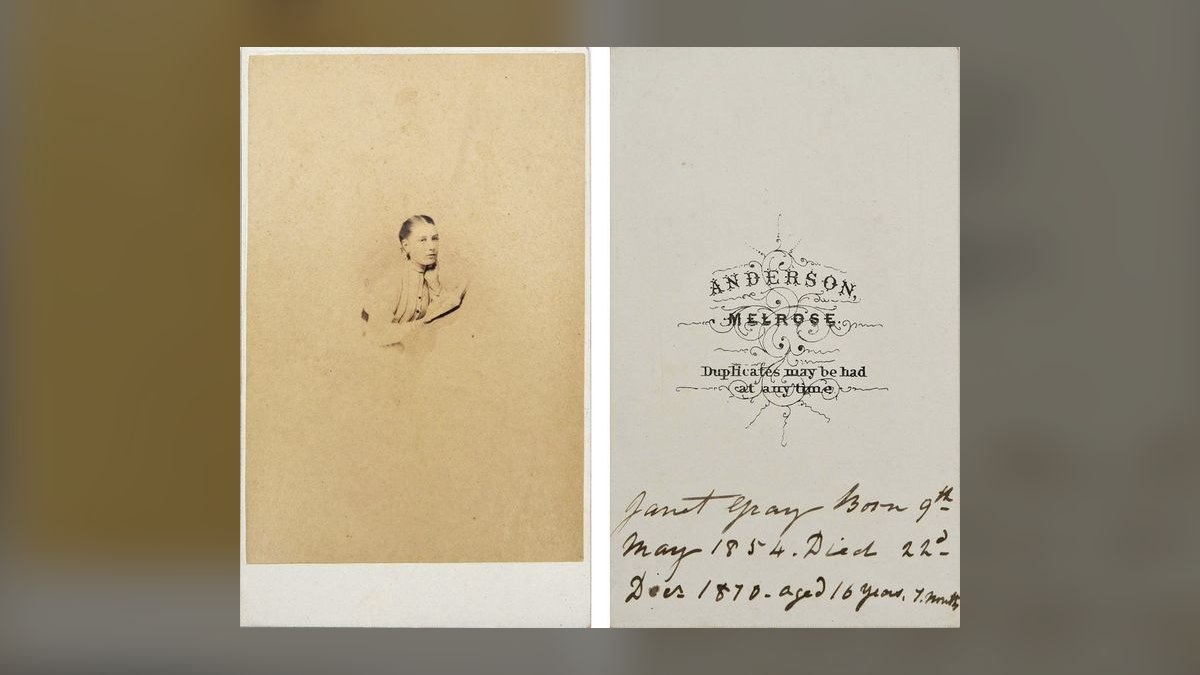 ANDERSON,
MELROSE.
Duplicates may be had
at any time
Janet Gray Born 9th
May 1854. Died 22d
Decr 1870. aged 16 years. 7. months